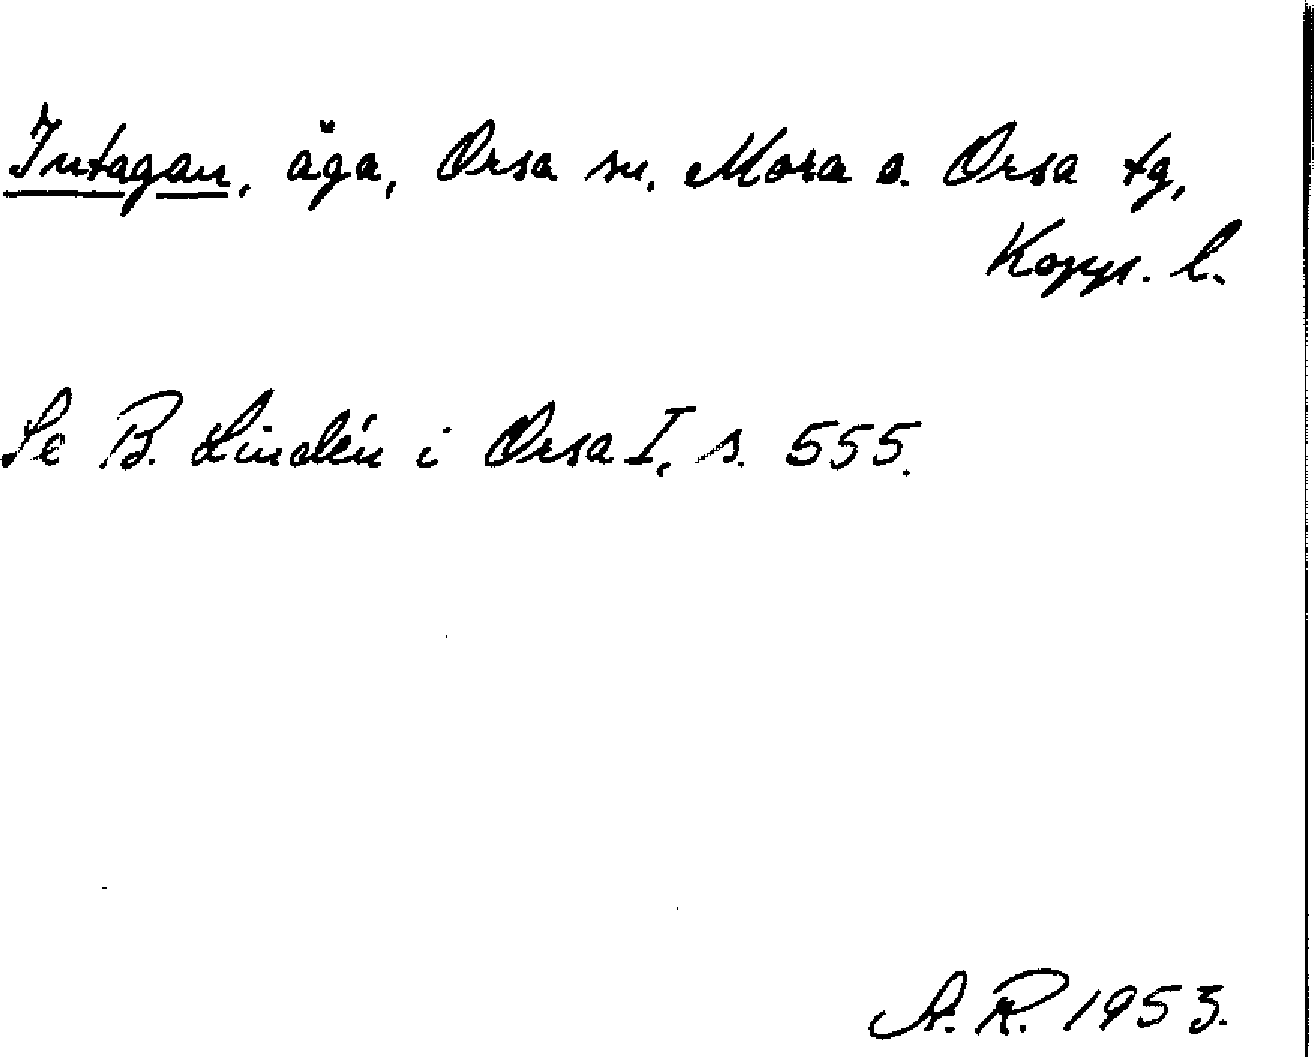 Intagan, äga, Orsa sn. Mora o. Orsa tg,
Kopp. l.
Se B. Lindén i Orsa I, s. 555.
A. R. 1953.